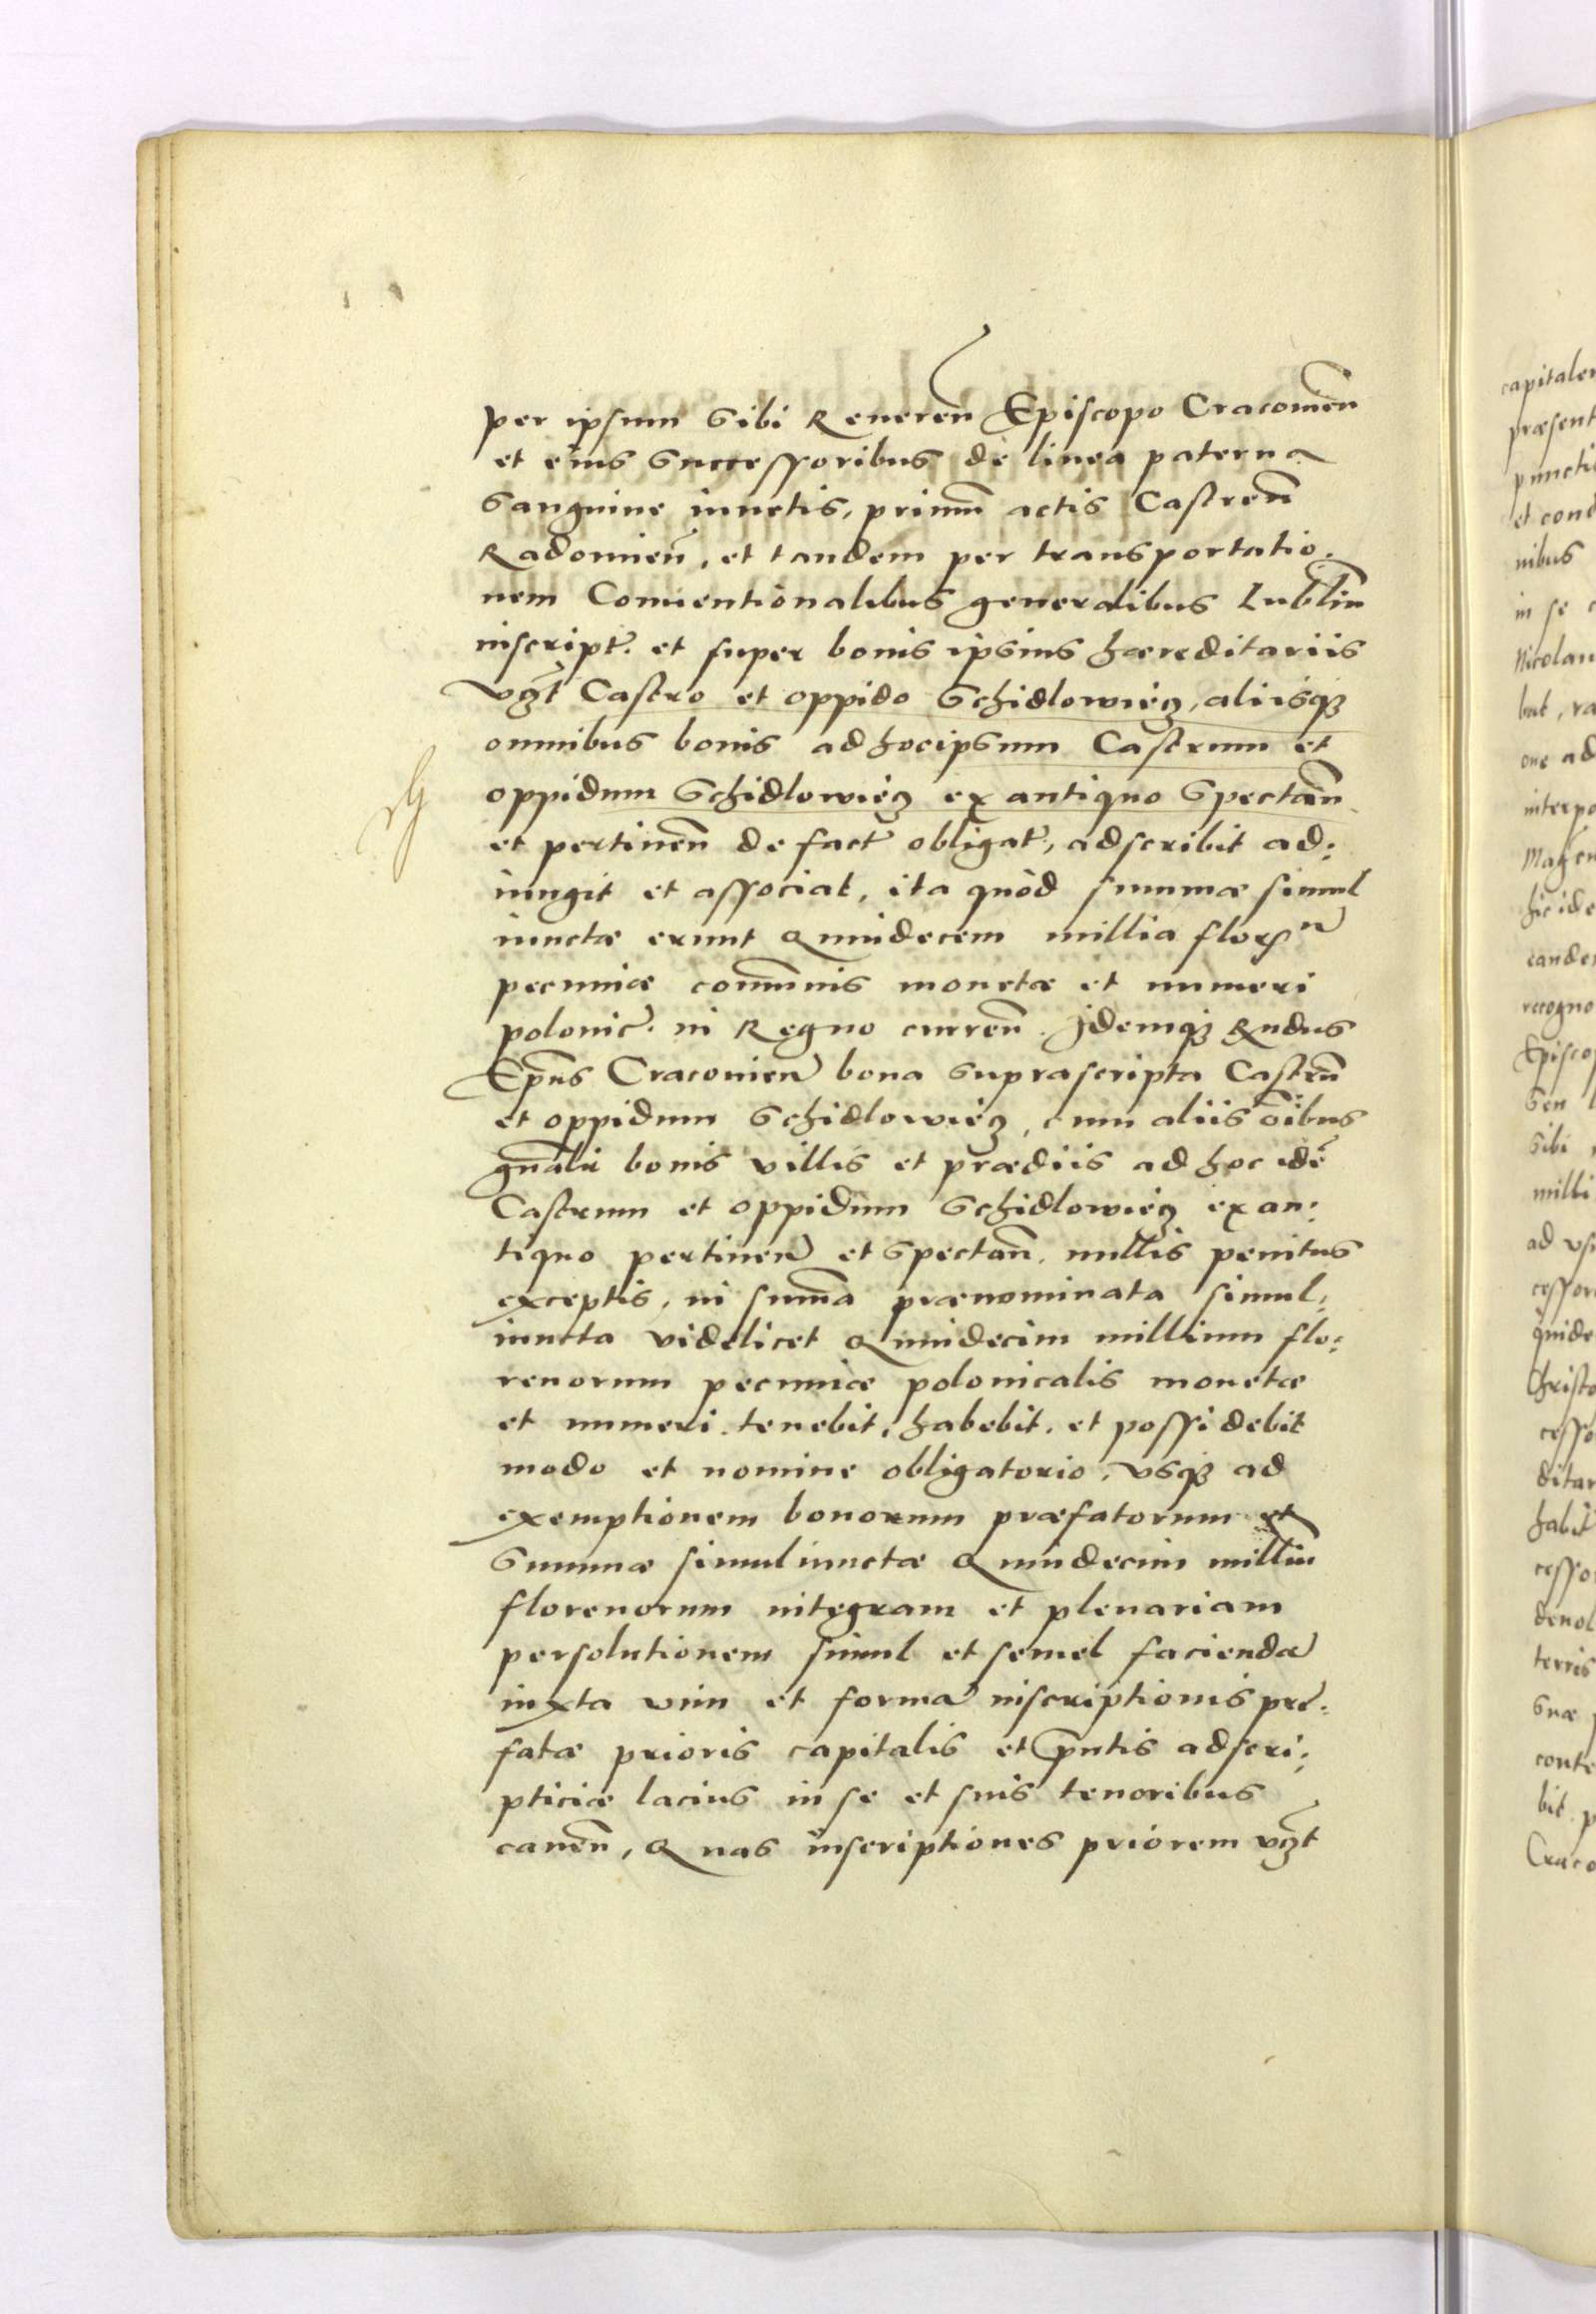 per ipsum sibi Reveren̄ Episcopo Cracovien̄
et eius successoribus de linea paterna
sanguine iunctis, primū actis Castren̄
Radomien̄, et tandem per transportatio:
nem Conventionalibus generalibus Lublin̄
inscript. et super bonis ipsius hæreditariis
vꝫt Castro et oppido Schidlowiecz, aliisqꝫ
omnibus bonis ad hocipsum Castrum et
oppidum Schidlowiecz ex antiquo spectan̄
et pertinen̄ de fact obligat, adscribit ad:
iungit et associat, ita quòd summæ simul
iunctæ erunt Quindecem millia florꝝ
pecuniæ com̄unis monetæ et numeri
polonic. in Regno curren̄. Idemqꝫ Rndus
Ep̄us Cracovien̄ bona suprascripta Castrū
et oppidum Schidlowiecz, cum aliis oībus
gn̄alit bonis villis et prædiis ad hoc idē
Castrum et oppidum Schidlowiecz ex an:
tiquo pertinen̄ et spectan̄, nullis penitus
exceptis, in sum̄a prænominata simul:
iuncta videlicet Quindecim millium flo:
renorum pecuniæ polonicalis monetæ
et numeri tenebit, habebit, et possidebit
modo et nomine obligatorio, vsqꝫ ad
exemptionem bonorum præfatorum et
summæ simul iunctæ Quindecim milliū
florenorum integram et plenariam
persolutionem simul et semel faciendā
iuxta vim et formā inscriptionis præ:
fatæ prioris capitalis et p̄ntis adscri:
pticiæ lacius in se et suis tenoribus
canen̄, Quas inscriptiones priorem vꝫt